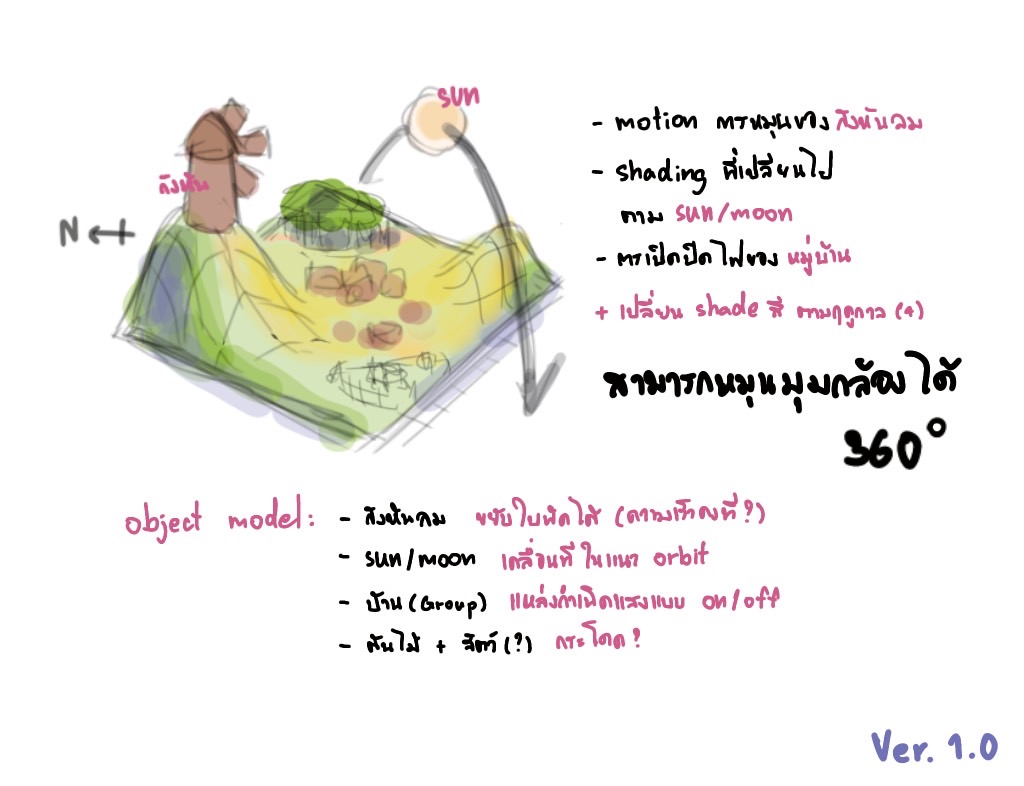 sun
กังหัน
N
- motion การหมุนของ กังหันลม
- shading ที่เปลี่ยนไป
ตาม sun/moon
- การเปิดปิดไฟของ หมู่บ้าน
+ เปลี่ยน shade สี ตามฤดูกาล (4)
สามารถหมุนมุมกล้องได้
360°
object model:
- กังหันลม ขยับใบพัดได้ (ความเร็วคงที่?)
- sun/moon เคลื่อนที่ในแนว orbit
- บ้าน (Group) แหล่งกำเนิดแสงแบบ on/off
- ต้นไม้ + สัตว์(?) กระโดด?
Ver. 1.0